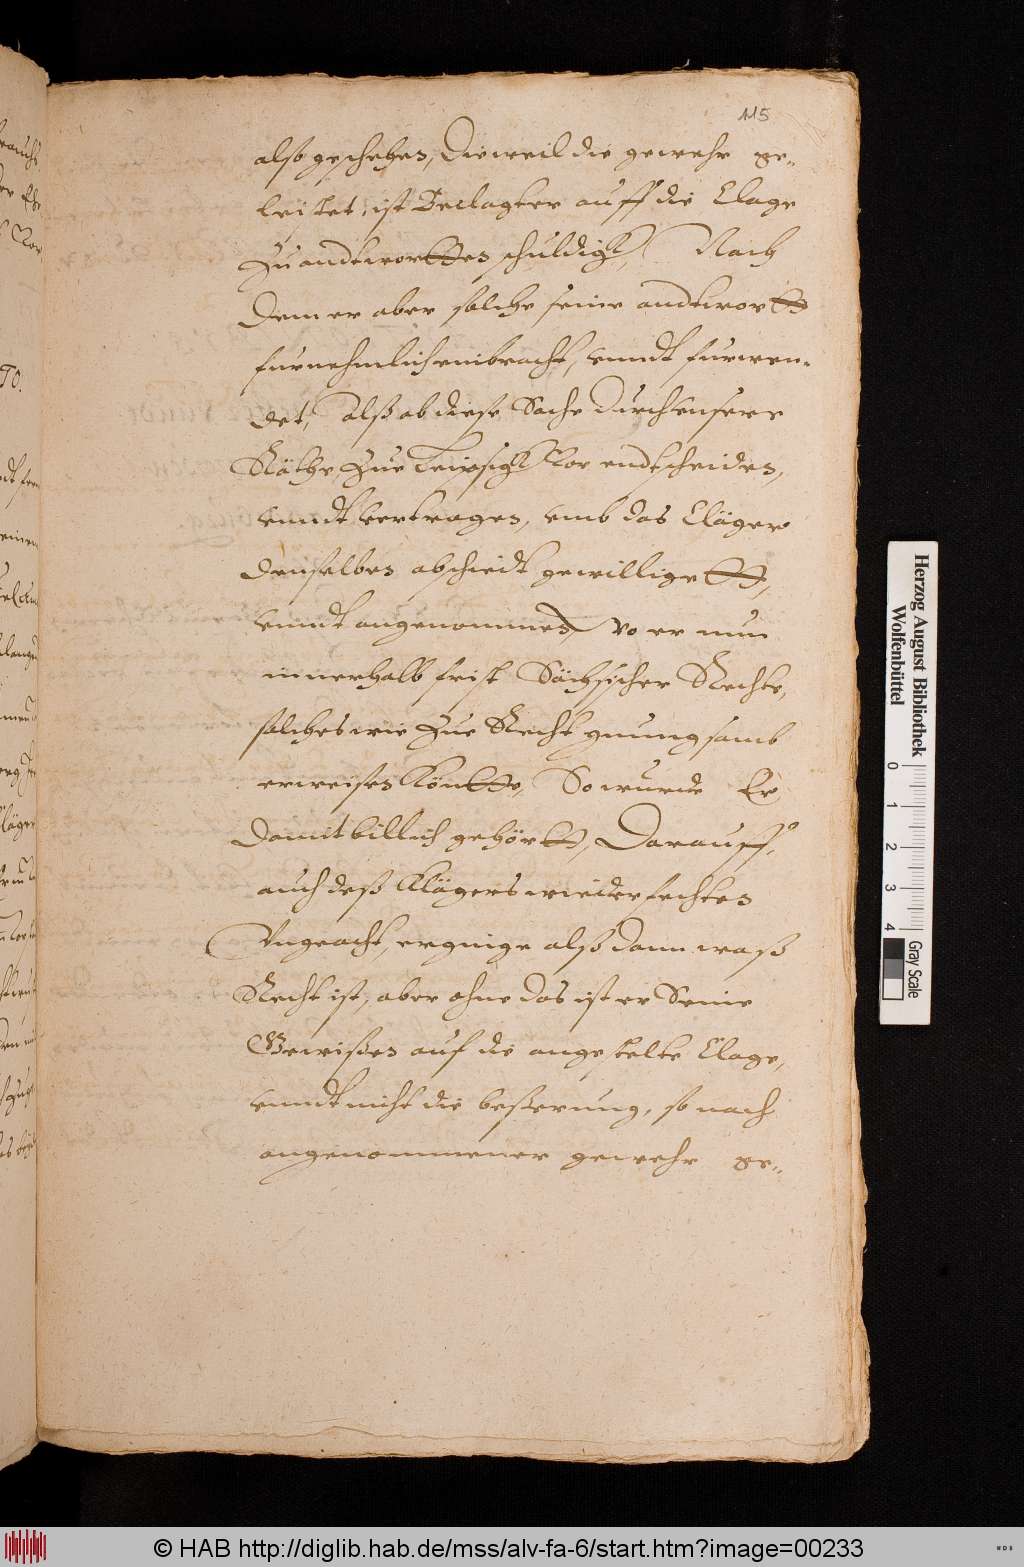 115
also geschehen, Dieweil die gewehr ge-
leistet, ist Beclagter auff die Clage
Zu andtwortten schuldigk, Nach
Dem er aber solche seine andtwortt
furnehmlich einbracht, vnndt furwen-
det, Alß ob diese Sache durch vnsere
Räthe Zue Leipsigk vor endtscheiden,
vnndt vertragen, vnd das Cläger
denselben abschiedt gewilligett,
vnndt angenommen, Wo er nun
innerhalb frist Sächsischer Rechte,
solches wie Zue Recht gnungsamb
erweisen Köntte, So wurde Er
Damit billich gehörtt, Darauff,
auch deß Klägers wiederfechten
Vngeacht, erginge alß dann waß
Recht ist, aber ohne das ist er Seine
Gewißen auf die angestelte Clage,
vnndt nicht die beßerung, so nach
angenommener gewehr ge-
Herzog August Bibliothek
Wolfenbüttel
0 1 2 3 4
Gray Scale
© HAB http://diglib.hab.de/mss/alv-fa-6/start.htm?image=00233